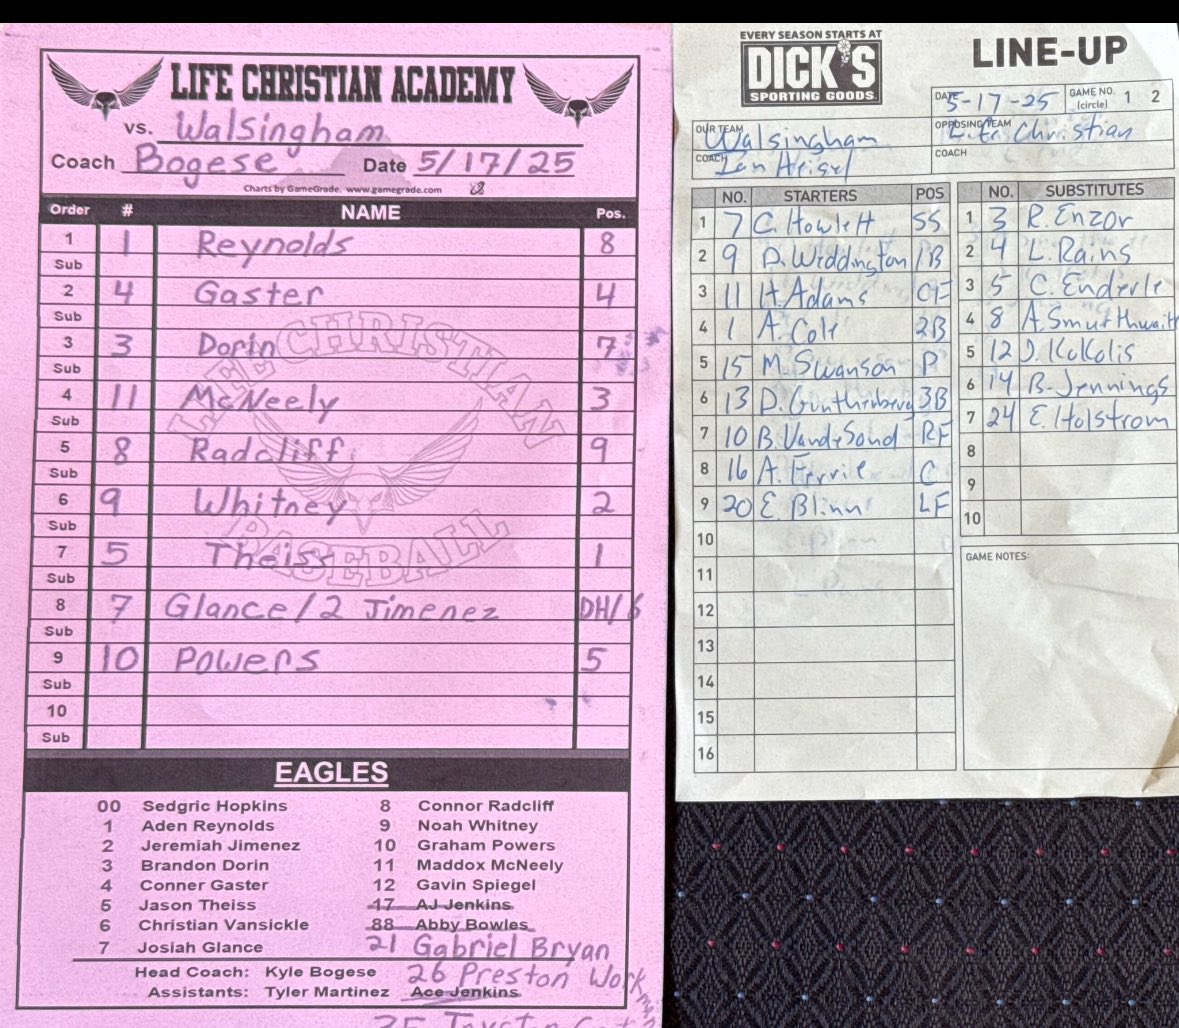 LIFE CHRISTIAN ACADEMY
vs. Walsingham
Coach Bogese Date 5/17/25
Charts by GameGrade. www.gamegrade.com
Order # NAME Pos.
1 1 Reynolds 8
Sub
2 4 Gaster 4
Sub
3 3 Dorin 7
Sub
4 11 McNeely 3
Sub
5 8 Radcliff 9
Sub
6 9 Whitney 2
Sub
7 5 Theiss 1
Sub
8 7 Glance/2 Jimenez DH/6
Sub
9 10 Powers 5
Sub
10
Sub
LIFE CHRISTIAN
BASEBALL
EAGLES
00 Sedgric Hopkins 8 Connor Radcliff
1 Aden Reynolds 9 Noah Whitney
2 Jeremiah Jimenez 10 Graham Powers
3 Brandon Dorin 11 Maddox McNeely
4 Conner Gaster 12 Gavin Spiegel
5 Jason Theiss 17 AJ Jenkins
6 Christian Vansickle 88 Abby Bowles
7 Josiah Glance 21 Gabriel Bryan
Head Coach: Kyle Bogese 26 Preston Work
Assistants: Tyler Martinez Ace Jenkins
EVERY SEASON STARTS AT
DICK'S
SPORTING GOODS
LINE-UP
DATE 5-17-25 GAME NO. (circle) 1 2
OUR TEAM Walsingham OPPOSING TEAM Life Christian
COACH Ian Heisel COACH
NO. STARTERS POS
1 7 C. Howlett SS
2 9 D. Widdington 1B
3 11 H. Adams CF
4 1 A. Cole 2B
5 15 M. Swanson P
6 13 D. Gunthenberg 3B
7 10 B. VandeSand RF
8 16 A. Ferrile C
9 20 E. Blinn LF
10
11
12
13
14
15
16
NO. SUBSTITUTES
1 3 R. Enzor
2 4 L. Rains
3 5 C. Enderle
4 8 A. Smurthwait
5 12 J. Kokolis
6 14 B. Jennings
7 24 E. Holstrom
8
9
10
GAME NOTES: